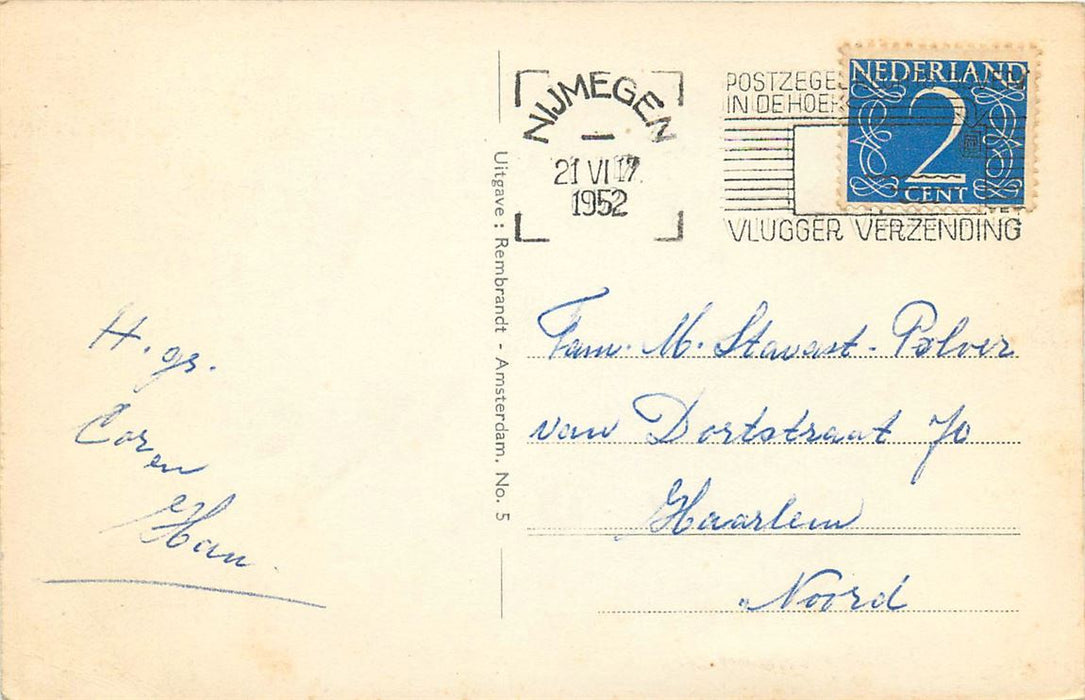 NIJMEGEN
21 VI 17
1952
POSTZEGE
IN DE HOEK
VLUGGER VERZENDING
NEDERLAND
2
CENT
Uitgave : Rembrandt - Amsterdam. No. 5
H. gr.
Cor en
Han
Fam. M. Stavast - Polver
van Dortstraat 70
Haarlem
Noord